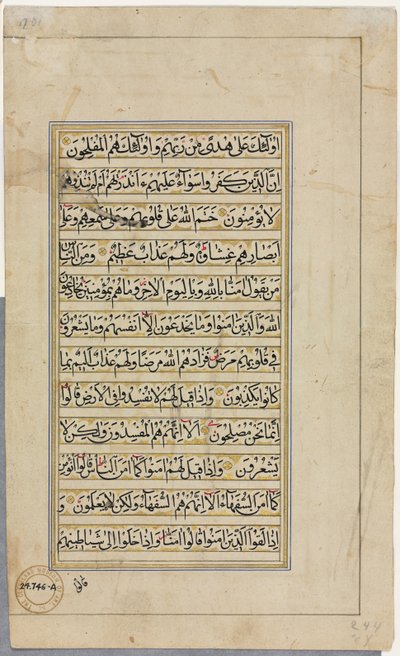 اُولٰئِكَ عَلىٰ هُدًى مِنْ رَبِّهِمْ وَاُولٰئِكَ هُمُ الْمُفْلِحُونَ
اِنَّ الَّذِينَ كَفَرُوا سَوَاءٌ عَلَيْهِمْ ءَاَنْذَرْتَهُمْ اَمْ لَمْ تُنْذِرْهُمْ
لَا يُؤْمِنُونَ خَتَمَ اللهُ عَلىٰ قُلُوبِهِمْ وَعَلىٰ سَمْعِهِمْ وَعَلىٰ
اَبْصَارِهِمْ غِشَاوَةٌ وَلَهُمْ عَذَابٌ عَظِيمٌ وَمِنَ النَّاسِ
مَنْ يَقُولُ اٰمَنَّا بِاللهِ وَبِالْيَوْمِ الْاٰخِرِ وَمَا هُمْ بِمُؤْمِنِينَ يُخَادِعُونَ
اللهَ وَالَّذِينَ اٰمَنُوا وَمَا يَخْدَعُونَ اِلَّا اَنْفُسَهُمْ وَمَا يَشْعُرُونَ
فِي قُلُوبِهِمْ مَرَضٌ فَزَادَهُمُ اللهُ مَرَضًا وَلَهُمْ عَذَابٌ اَلِيمٌ بِمَا
كَانُوا يَكْذِبُونَ وَاِذَا قِيلَ لَهُمْ لَا تُفْسِدُوا فِي الْاَرْضِ قَالُوا
اِنَّمَا نَحْنُ مُصْلِحُونَ اَلَا اِنَّهُمْ هُمُ الْمُفْسِدُونَ وَلٰكِنْ لَا
يَشْعُرُونَ وَاِذَا قِيلَ لَهُمْ اٰمِنُوا كَمَا اٰمَنَ النَّاسُ قَالُوا اَنُؤْمِنُ
كَمَا اٰمَنَ السُّفَهَاءُ اَلَا اِنَّهُمْ هُمُ السُّفَهَاءُ وَلٰكِنْ لَا يَعْلَمُونَ وَ
اِذَا لَقُوا الَّذِينَ اٰمَنُوا قَالُوا اٰمَنَّا وَاِذَا خَلَوْا اِلىٰ شَيَاطِينِهِمْ
قالوا
24.746-A
244